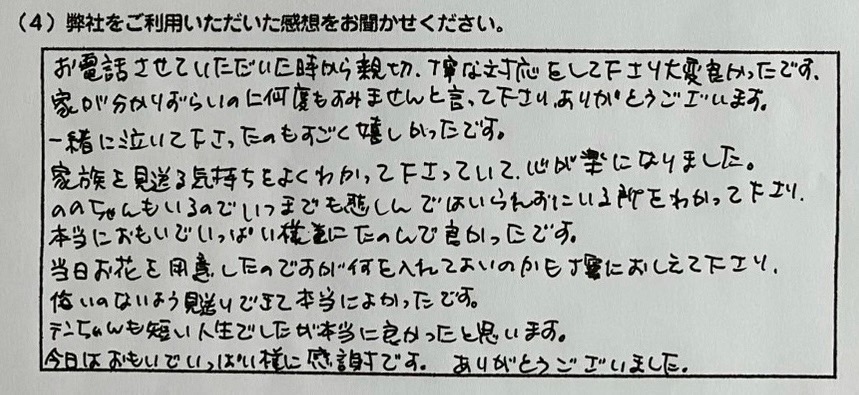 (4) 弊社をご利用いただいた感想をお聞かせください。
お電話させていただいた時から親切、丁寧な対応をして下さり大変良かったです。
家が分かりずらいのに何度もすみませんと言って下さりありがとうございます。
一緒に泣いて下さったのもすごく嬉しかったです。
家族を見送る気持ちをよくわかって下さっていて、心が楽になりました。
ののちゃんもいるのでいつまでも悲しんではいられずにいる所をわかって下さり、
本当におもいでいっぱい様にたのんで良かったです。
当日お花を用意したのですが何を入れてよいのかも丁寧におしえて下さり、
悔いのないよう見送りできて本当によかったです。
テンちゃんも短い人生でしたが本当に良かったと思います。
今日はおもいでいっぱい様に感謝です。 ありがとうございました。